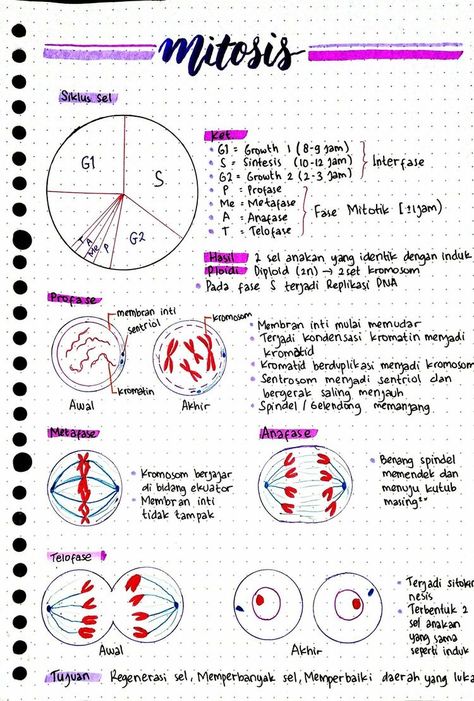 mitosis
Siklus sel
G1
S
G2
T
A
Me
P
Ket.
• G1 = Growth 1 (8-9 jam)
• S = Sintesis (10-12 jam)
• G2 = Growth 2 (2-3 jam)
Interfase
• P = Profase
• Me = Metafase
• A = Anafase
• T = Telofase
Fase Mitotik [±1jam)
Hasil 2 sel anakan yang identik dengan induk
Ploidi Diploid (2n) → 2 set kromosom
• Pada fase S terjadi Replikasi DNA
Profase
membran inti
sentriol
kromatin
Awal
kromosom
Akhir
• Membran inti mulai memudar
• Terjadi kondensasi kromatin menjadi
kromatid
• Kromatid berduplikasi menjadi kromosom
• Sentrosom menjadi sentriol dan
bergerak saling menjauh
• Spindel / Gelendong memanjang
Metafase
• Kromosom berjajar
di bidang ekuator
• Membran inti
tidak tampak
Anafase
• Benang spindel
memendek dan
menuju kutub
masing²
Telofase
Awal
Akhir
• Terjadi sitoki
nesis
• Terbentuk 2
sel anakan
yang sama
seperti induk
Tujuan Regenerasi sel, Memperbanyak sel, Memperbaiki daerah yang luka